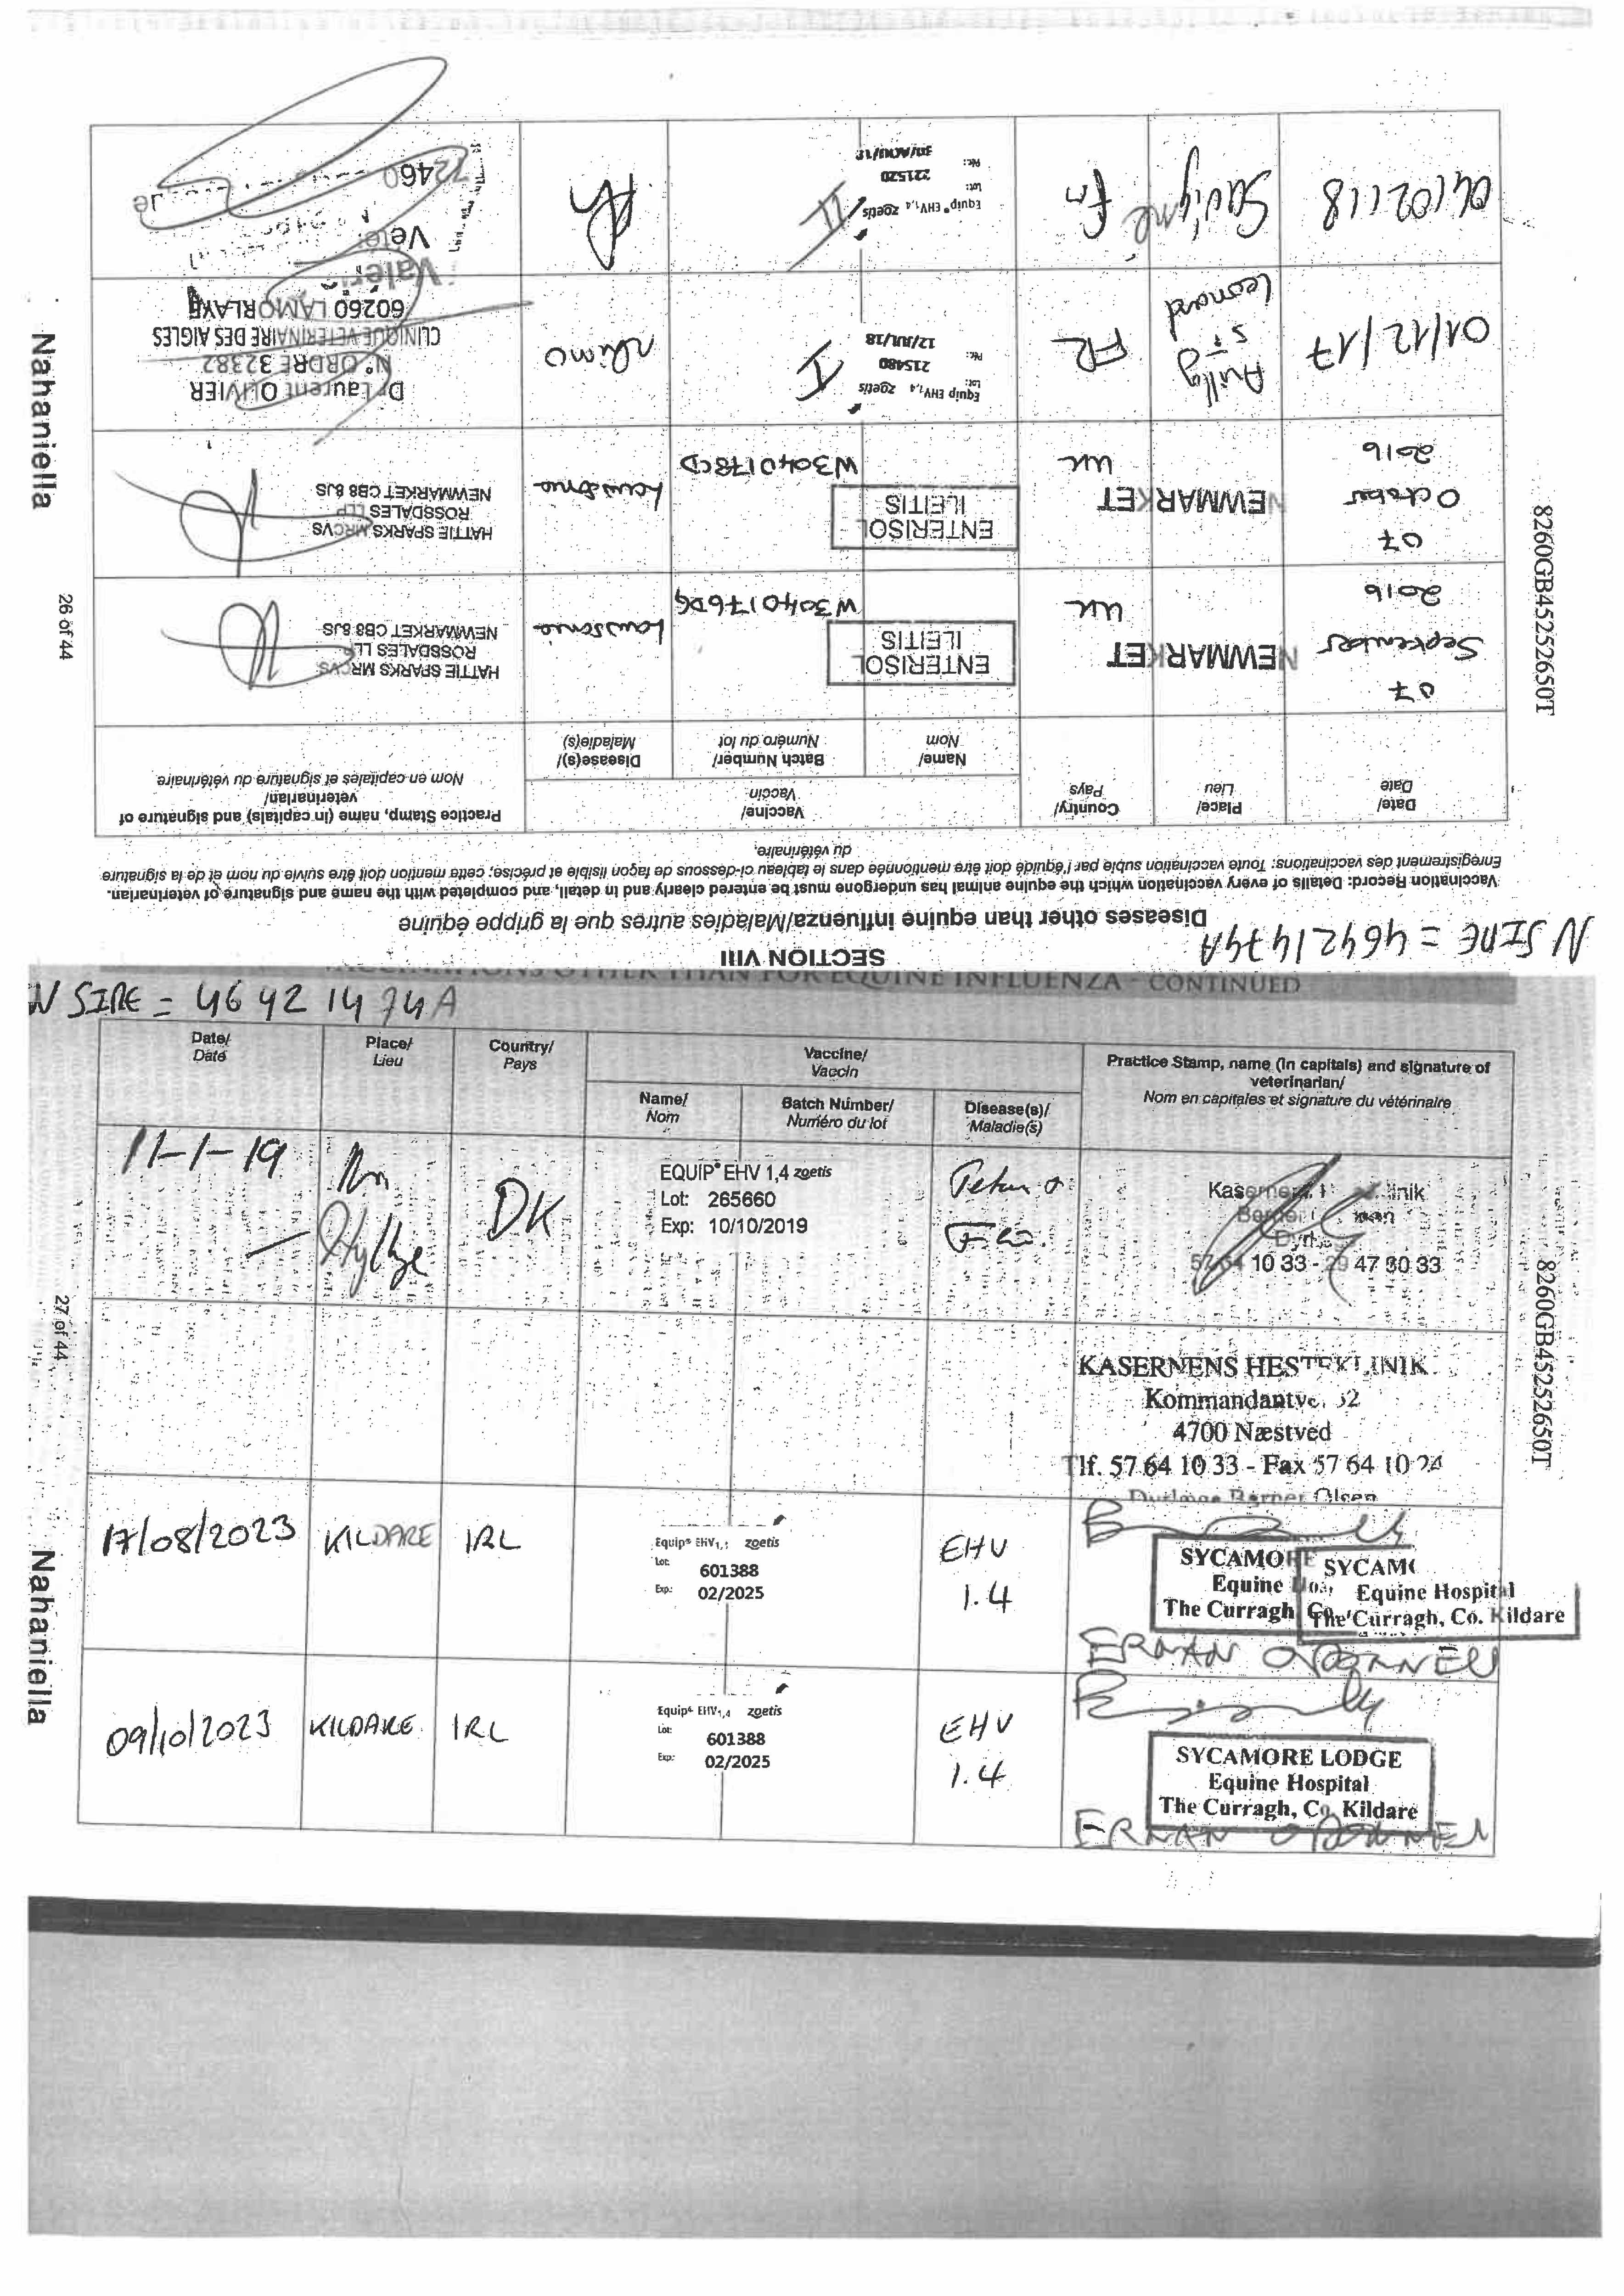 SECTION VIII
N SIRE = 46421474A
Diseases other than equine influenza/Maladies autres que la grippe équine
Vaccination Record: Details of every vaccination which the equine animal has undergone must be entered clearly and in detail, and completed with the name and signature of veterinarian.
Enregistrement des vaccinations: Toute vaccination subie par l'équidé doit être mentionnée dans le tableau ci-dessous de façon lisible et précise; cette mention doit être suivie du nom et de la signature
du vétérinaire.
Date/
Date
Place/
Lieu
Country/
Pays
Vaccine/
Vaccin
Practice Stamp, name (in capitals) and signature of
veterinarian/
Nom en capitales et signature du vétérinaire
Name/
Nom
Batch Number/
Numéro du lot
Disease(s)/
Maladie(s)
07
September
2016
NEWMARKET
UK
ENTERISOL
ILEITIS
W3040176DG
Lawsonia
HATTIE SPARKS MRCVS
ROSSDALES LLP
NEWMARKET CB8 8JS
07
October
2016
NEWMARKET
UK
ENTERISOL
ILEITIS
W3040178CD
Lawsonia
HATTIE SPARKS MRCVS
ROSSDALES LLP
NEWMARKET CB8 8JS
01/12/17
Avilly
St
Leonard
FR
Equip EHV1,4 zoetis
Lot: 215480
Pk: 12/JUL/18
I
Rhino
Dr Laurent OLIVIER
N° ORDRE 32382
CLINIQUE VETERINAIRE DES AIGLES
60260 LAMORLAYE
04/02/18
Savigné
Fr
Equip® EHV1,4 zoetis
Lot: 221520
II
Rh
Valéri
Vété
8260GB45252650T
26 of 44
Nahaniella
VACCINATIONS OTHER THAN FOR EQUINE INFLUENZA - CONTINUED
N SIRE = 46421474A
Date/
Date
Place/
Lieu
Country/
Pays
Vaccine/
Vaccin
Practice Stamp, name (in capitals) and signature of
veterinarian/
Nom en capitales et signature du vétérinaire
Name/
Nom
Batch Number/
Numéro du lot
Disease(s)/
Maladie(s)
11-1-19
DK
EQUIP® EHV 1,4 zoetis
Lot: 265660
Exp: 10/10/2019
10 33 - 29 47 30 33
KASERNENS HESTEKLINIK
4700 Næstved
Tlf. 57 64 10 33 - Fax 57 64 10 24
17/08/2023
KILDARE
IRL
Equip® EHV1,4 zoetis
Lot: 601388
Exp: 02/2025
EHV
1.4
SYCAMORE
Equine
The Curragh
SYCAMO
Equine Hospital
The Curragh, Co. Kildare
09/10/2023
KILDARE
IRL
Equip® EHV1,4 zoetis
Lot: 601388
Exp: 02/2025
EHV
1.4
SYCAMORE LODGE
Equine Hospital
The Curragh, Co. Kildare
8260GB45252650T
27 of 44
Nahaniella